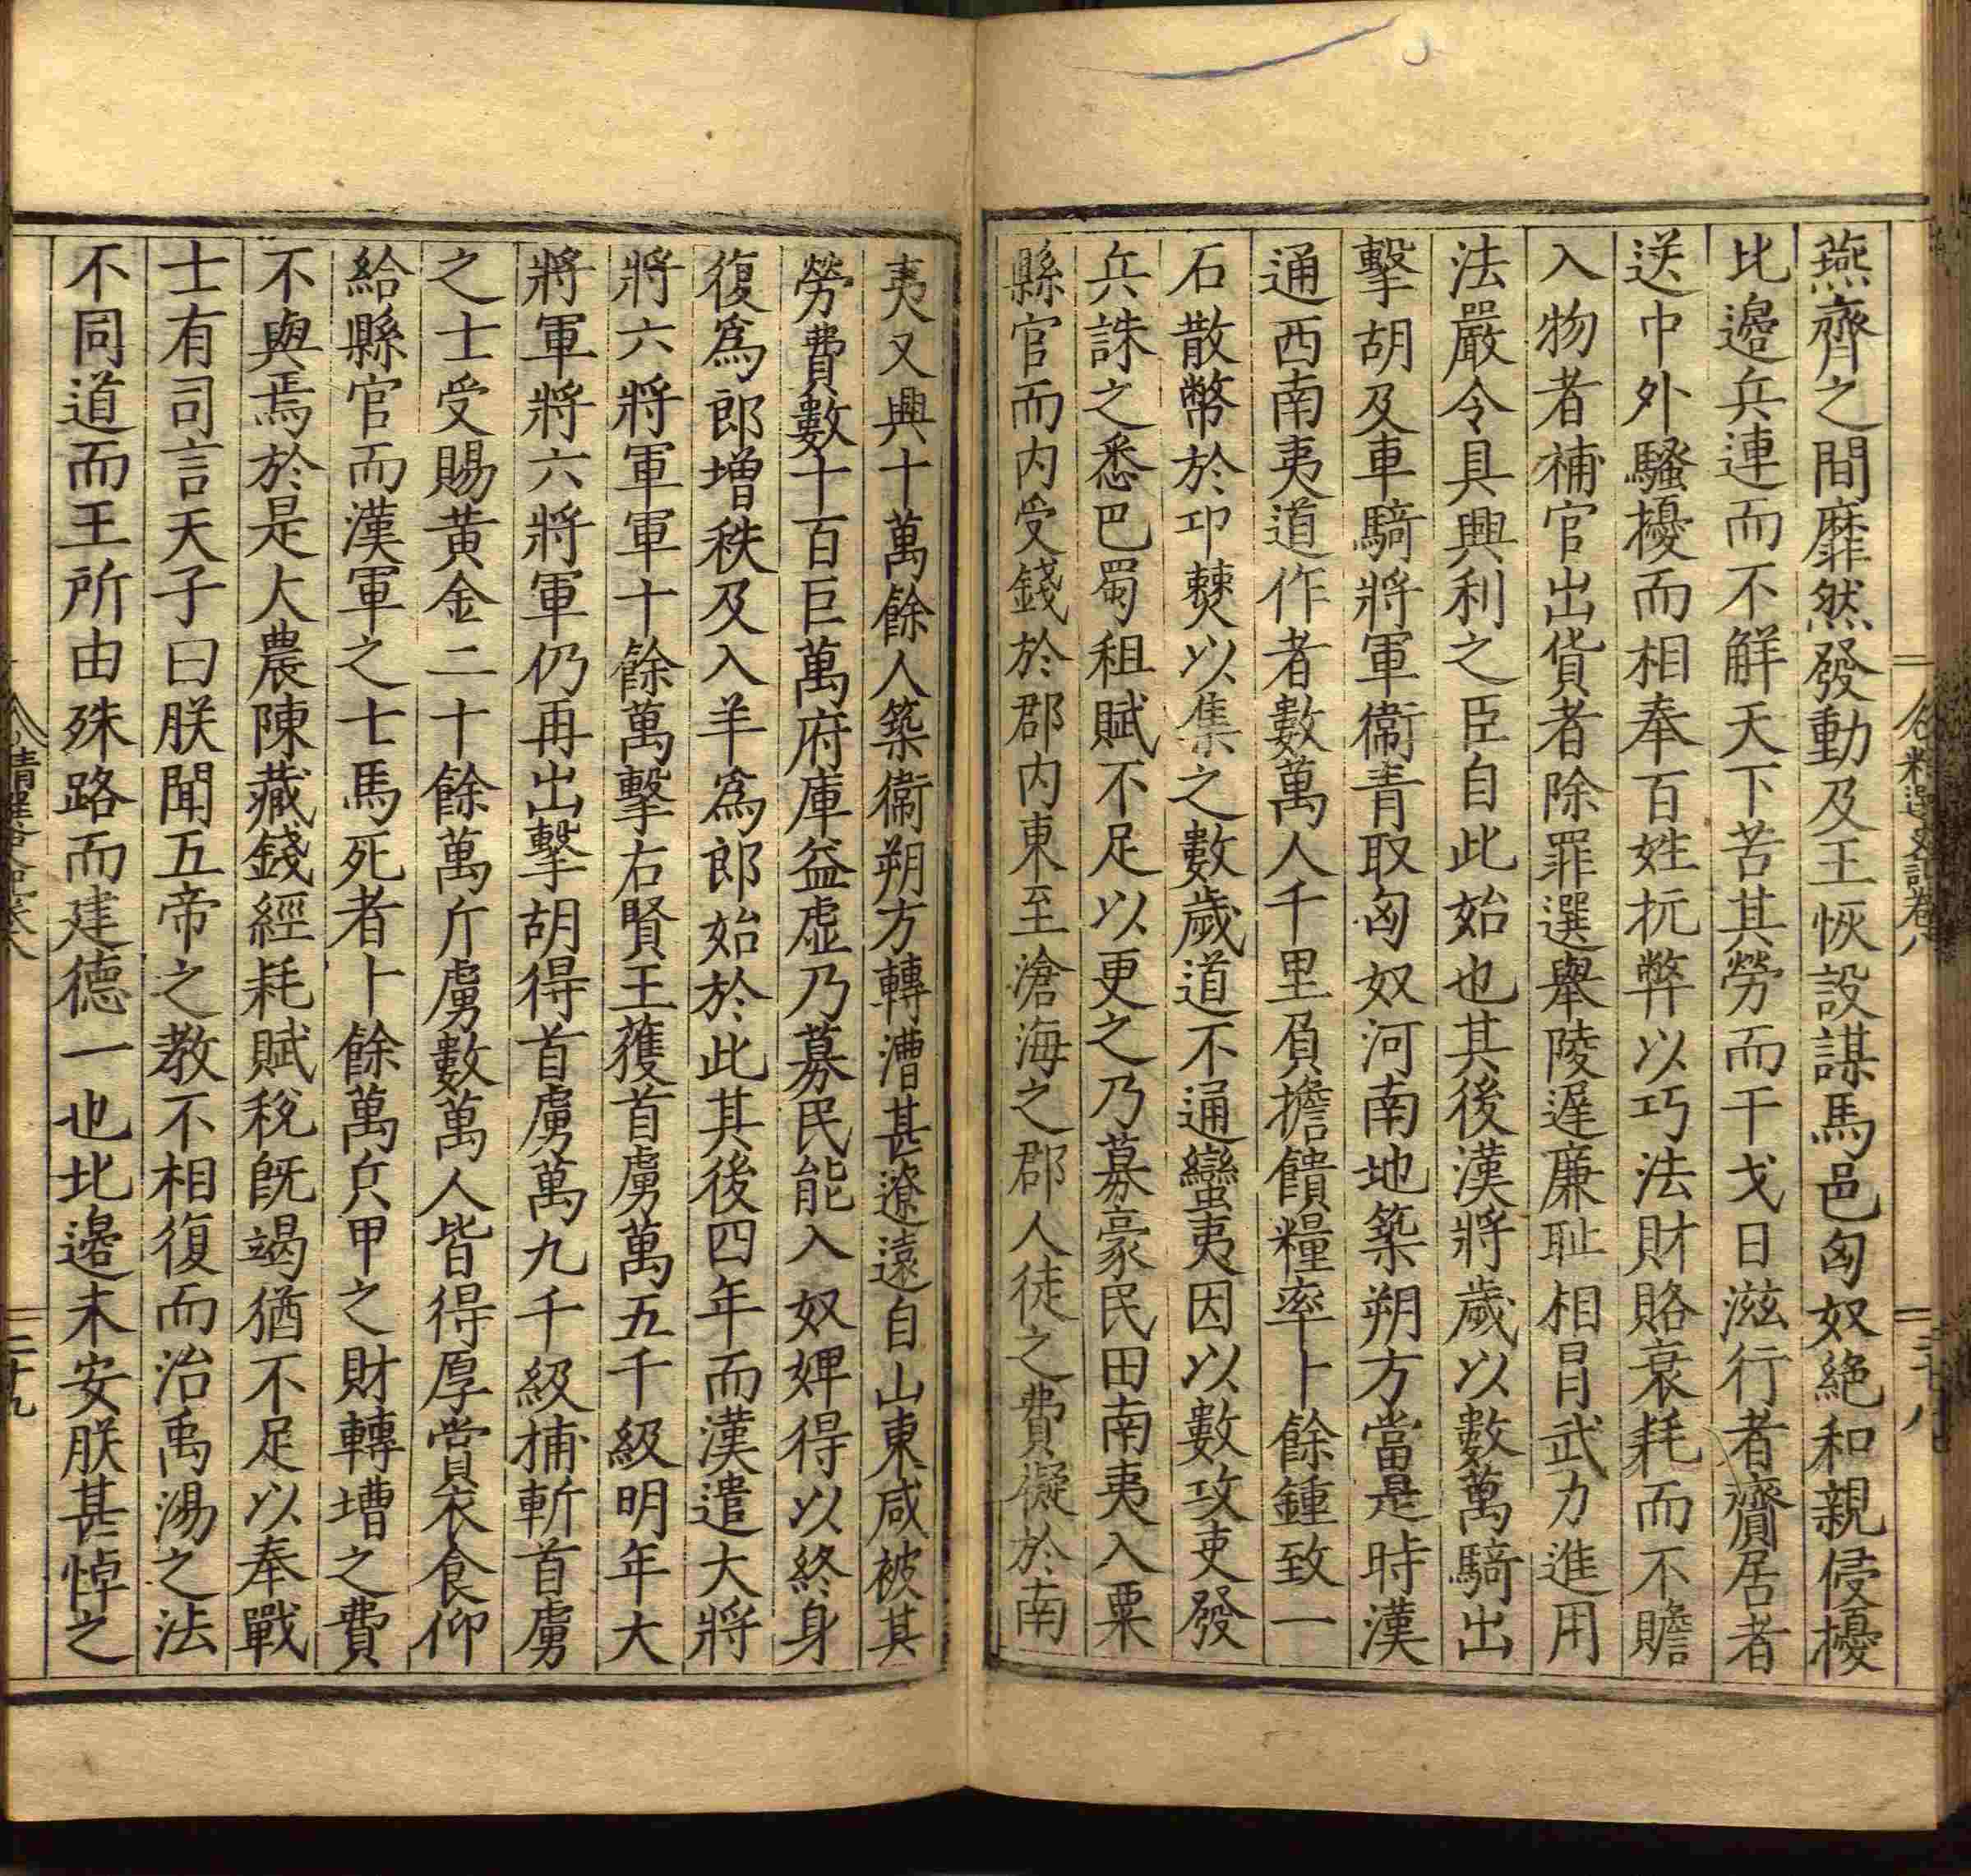 燕齊之間靡然發動及王恢設謀馬邑匈奴絶和親侵擾
比邉兵連而不解天下苦其勞而干戈日滋行者齎居者
送中外騷擾而相奉百姓抏弊以巧法財賂衰耗而不贍
入物者補官出貨者除罪選舉陵遲廉耻相冐武力進用
法嚴令具興利之臣自此始也其後漢將歲以數萬騎出
擊胡及車騎將軍衞青取匈奴河南地築朔方當是時漢
通西南夷道作者數萬人千里負擔饋糧率十餘鍾致一
石散幣於卭僰以集之數歲道不通蠻夷因以數攻吏發
兵誅之悉巴蜀租賦不足以更之乃募豪民田南夷入粟
縣官而内受錢於郡内東至滄海之郡人徒之費擬於南
夷又興十萬餘人築衞朔方轉漕甚遼遠自山東咸被其
勞費數十百巨萬府庫益虚乃募民能入奴婢得以終身
復爲郎增秩及入羊爲郎始於此其後四年而漢遣大將
將六將軍軍十餘萬擊右賢王獲首虜萬五千級明年大
將軍將六將軍仍再出擊胡得首虜萬九千級捕斬首虜
之士受賜黃金二十餘萬斤虜數萬人皆得厚賞衣食仰
給縣官而漢軍之士馬死者十餘萬兵甲之財轉漕之費
不與焉於是大農陳藏錢經耗賦稅旣竭猶不足以奉戰
士有司言天子曰朕聞五帝之教不相復而治禹湯之法
不同道而王所由殊路而建德一也北邉未安朕甚悼之
二十九